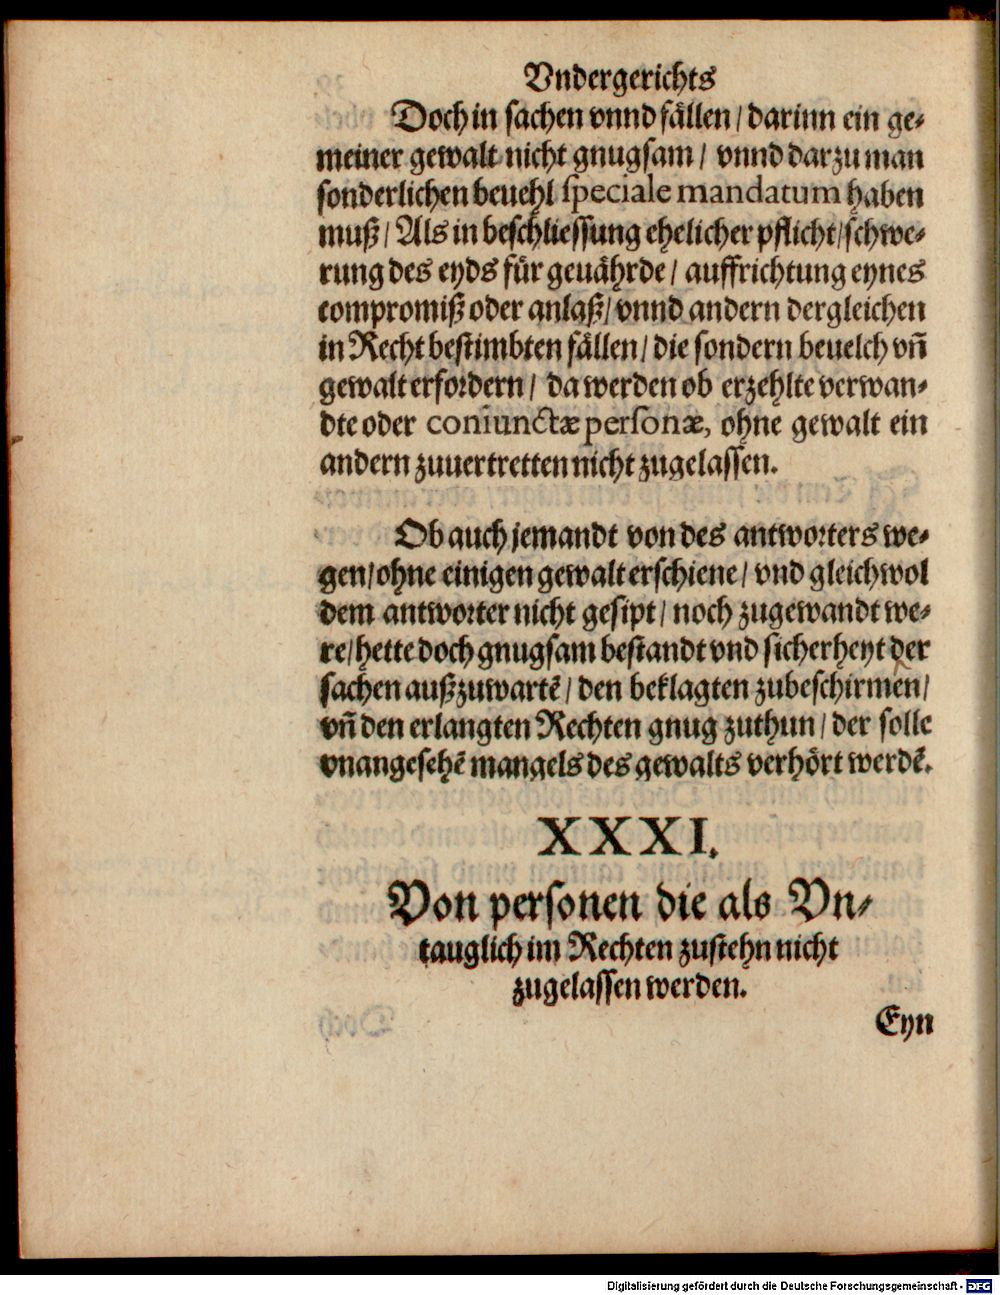 Vndergerichts
Doch in sachen vnnd fällen / darinn ein ge⸗
meiner gewalt nicht gnugsam / vnnd darzu man
sonderlichen beuehl speciale mandatum haben
muß / Als in beschliessung ehelicher pflicht / schwe⸗
rung des eyds für geuährde / auffrichtung eynes
compromiß oder anlaß / vnnd andern dergleichen
in Recht bestimbten fällen / die sondern beuelch vñ
gewalt erfordern / da werden ob erzehlte verwan⸗
dte oder coniunctæ personæ, ohne gewalt ein
andern zuuertretten nicht zugelassen.
Ob auch jemandt von des antworters we⸗
gen / ohne einigen gewalt erschiene / vnd gleichwol
dem antworter nicht gesipt / noch zugewandt we⸗
re / hette doch gnugsam bestandt vnd sicherheyt der
sachen außzuwartẽ / den beklagten zubeschirmen /
vñ den erlangten Rechten gnug zuthun / der solle
vnangesehẽ mangels des gewalts verhört werdẽ.
XXXI.
Von personen die als Vn⸗
tauglich im Rechten zustehn nicht
zugelassen werden.
Eyn
Digitalisierung gefördert durch die Deutsche Forschungsgemeinschaft - DFG